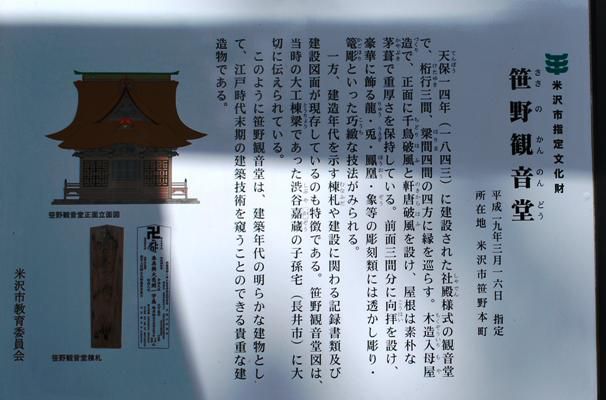 米沢市指定文化財
笹野観音堂
ささのかんのんどう
平成一九年三月一六日 指定
所在地 米沢市笹野本町
天保一四年（一八四三）に建設された社殿様式の観音堂
で、桁行三間、梁間四間の四方に縁を巡らす。木造入母屋
造で、正面に千鳥破風と軒唐破風を設け、屋根は素朴な
茅葺で重厚さを保持している。前面三間分に向拝を設け、
豪華に飾る龍・兎・鳳凰・象等の彫刻類には透かし彫り・
篭彫といった巧緻な技法がみられる。
一方、建造年代を示す棟札や建設に関わる記録書類及び
建設図面が現存しているのも特徴である。笹野観音堂図は、
当時の大工棟梁であった渋谷嘉蔵の子孫宅（長井市）に大
切に伝えられている。
このように笹野観音堂は、建築年代の明らかな建物とし
て、江戸時代末期の建築技術を窺うことのできる貴重な建
造物である。
米沢市教育委員会
笹野観音堂正面立面図
笹野観音堂棟札